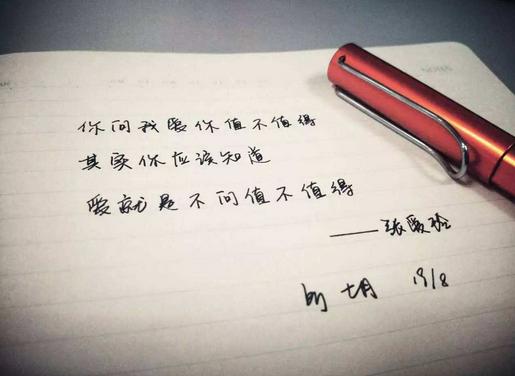 你问我爱你值不值得
其实你应该知道
爱就是不问值不值得
——张爱玲
by 七月 19/8
NOTES